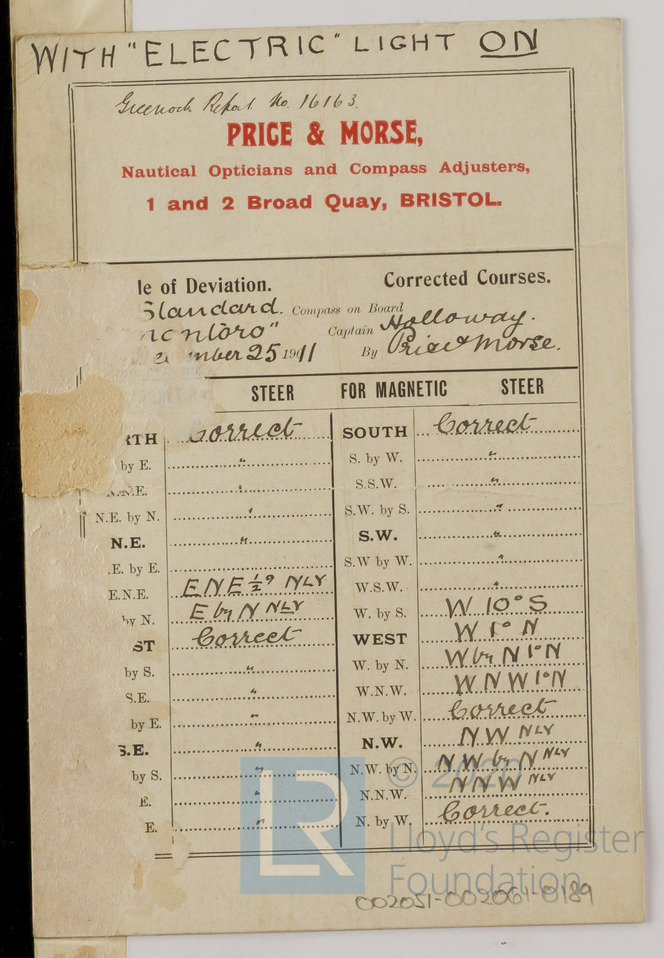 WITH "ELECTRIC" LIGHT ON
Greenock Report No. 16163.
PRICE & MORSE,
Nautical Opticians and Compass Adjusters,
1 and 2 Broad Quay, BRISTOL.
le of Deviation. Corrected Courses.
Standard. Compass on Board
ntoro" Captain Holloway.
mber 25 1911 By Price & Morse.
STEER FOR MAGNETIC STEER
RTH Correct SOUTH Correct
by E. " S. by W. "
N.N.E. " S.S.W. "
N.E. by N. " S.W. by S. "
N.E. " S.W. "
.E. by E. S.W by W. "
E.N.E. ENE ½° NLY W.S.W. "
by N. E by N NLY W. by S. W 10° S
ST Correct WEST W 1° N
by S. " W. by N. W by N 1° N
S.E. " W.N.W. W N W 1° N
by E. " N.W. by W. Correct
S.E. " N.W. N W NLY
by S. " N.W. by N. N W by N NLY
E. " N.N.W. N N W NLY
E. " N. by W. Correct.
LR
© 2020
Lloyd's Register
Foundation
002051-002061-0189